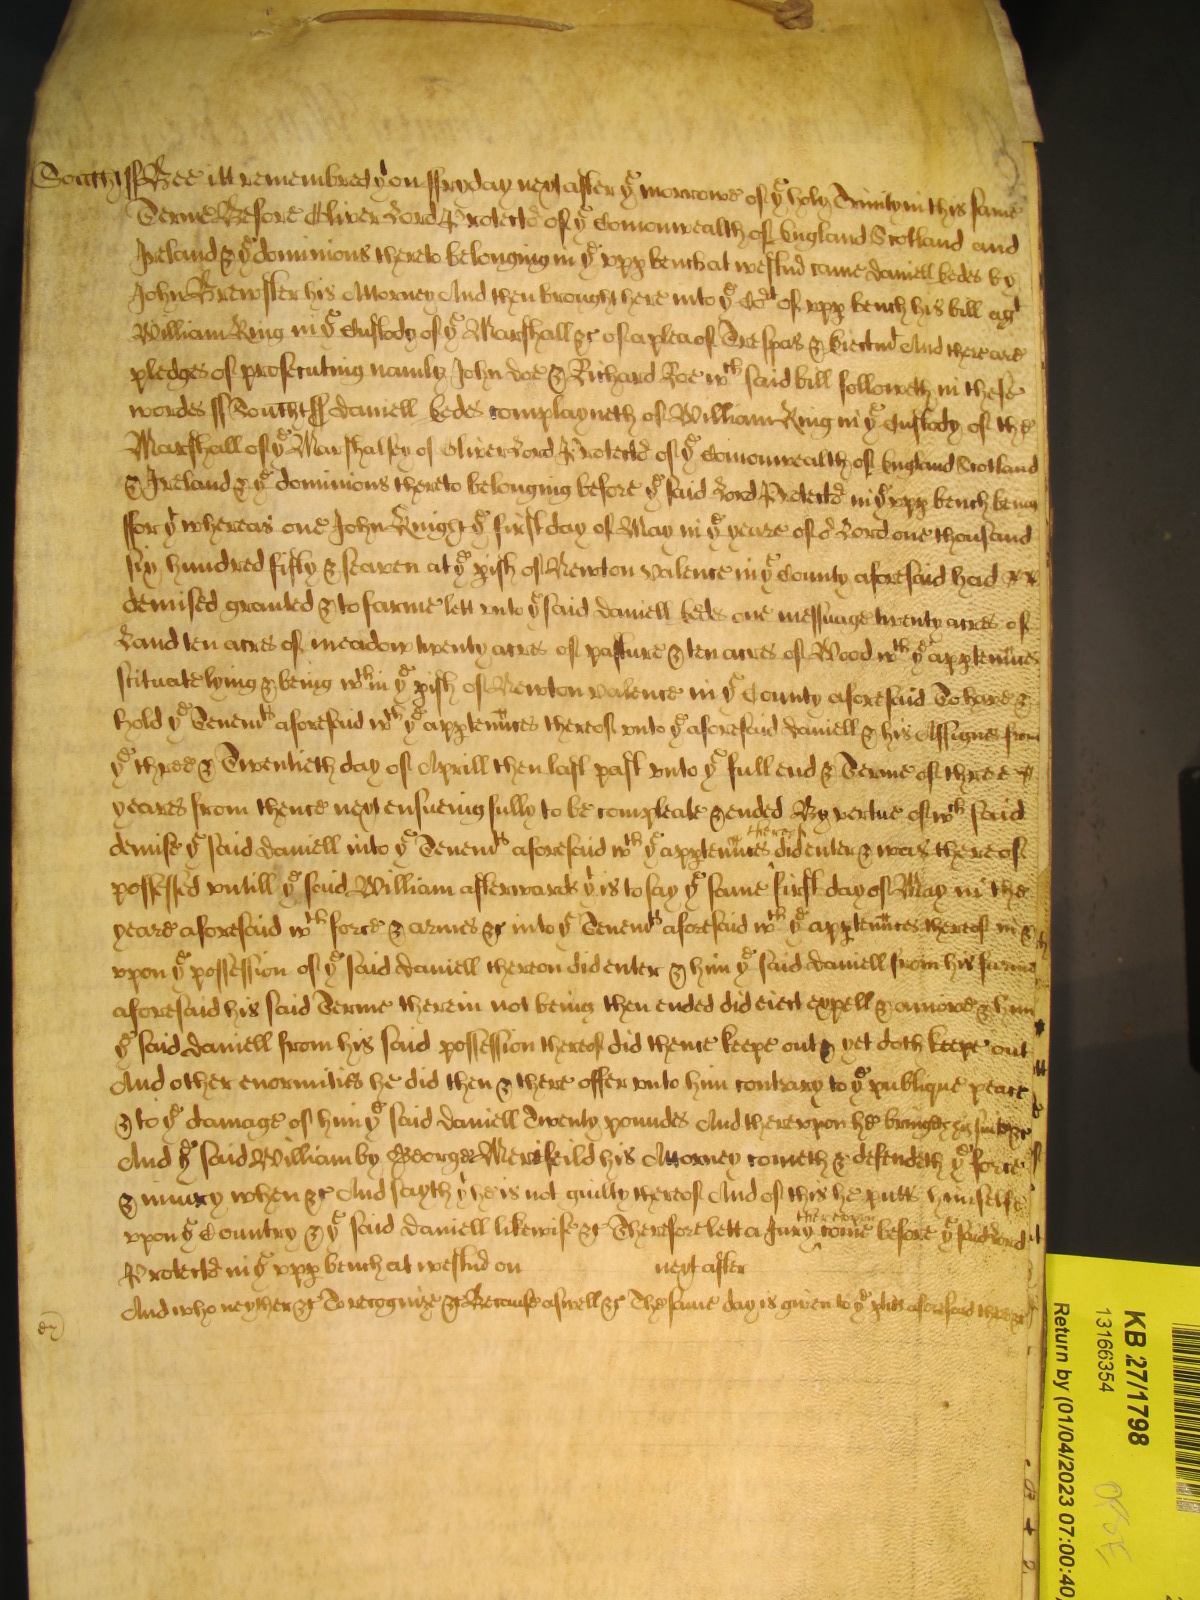 Southt ss Bee itt remembred yt on ffryday next after ye morrowe of ye holy Trinity in this same
Terme Before Oliver Lord Protector of ye Comonwealth of England Scotland and
Ireland & ye dominions thereto belonging in ye upp bench at westmr came daniell Eedes by
John Brewster his Attorney And then brought here into ye Cort of upp bench his bill agt
William King in ye Custody of ye Marshall &c of a plea of Trespas & Eiectmt And there are
pledges of prosecuting namly John doe & Richard Roe wch said bill followeth in these
wordes ss Southt ss daniell Eedes complayneth of William King in ye Custody of the
Marshall of ye Marshalsey of Oliver Lord Protector of ye Comonwealth of England Scotland
& Ireland & ye dominions thereto belonging before ye said Lord Protector in ye upp bench being
ffor yt whereas one John Knight ye first day of May in ye yeare of or Lord one thousand
six hundred fifty & seaven at ye pish of Newton valence in ye County aforesaid had
demised granted & to farme lett unto ye said daniell Eedes one messuage twenty acres of
Land ten acres of meadow twenty acres of pasture & ten acres of Wood wth ye apptenuces
scituate lying & being wthin ye pish of Newton valence in ye County aforesaid To have &
hold ye Tenemts aforesaid wth ye apptenuces thereof unto ye aforesaid daniell & his Assignes from
ye three & Twentieth day of Aprill then last past unto ye full end & Terme of three
yeares from thence next ensueing fully to be compleate & ended By vertue of wch said
demise ye said daniell into ye Tenemts aforesaid wth ye apptenuces thereof did enter & was thereof
possessed untill ye said William afterwards yt is to say ye same first day of May in the
yeare aforesaid wth force & armes &c into ye Tenemts aforesaid wth ye apptenuces thereof in &
upon ye possession of ye said daniell thereon did enter & him ye said daniell from his farme
aforesaid his said Terme therein not being then ended did eiect expell & amove & him
ye said daniell from his said possession thereof did thence keepe out & yet doth keepe out
And other enormities he did then & there offer unto him contrary to ye publique peace
& to ye damage of him ye said daniell Twenty poundes And thereupon he bringeth his suite &c
And ye said William by George Merefeild his Attorney cometh & defendeth ye force
& iniury when &c And sayth yt he is not guilty thereof And of this he putts himselfe
upon ye Country & ye said daniell likewise &c Therefore lett a Jury thereupon come before ye said Lord
Protector in ye upp bench at westmr on next after
And who neyther &c To recognize &c Because aswell &c The same day is given to ye pties aforesaid there &c
KB 27/1798
13166354
Return by (01/04/2023 07:00:40